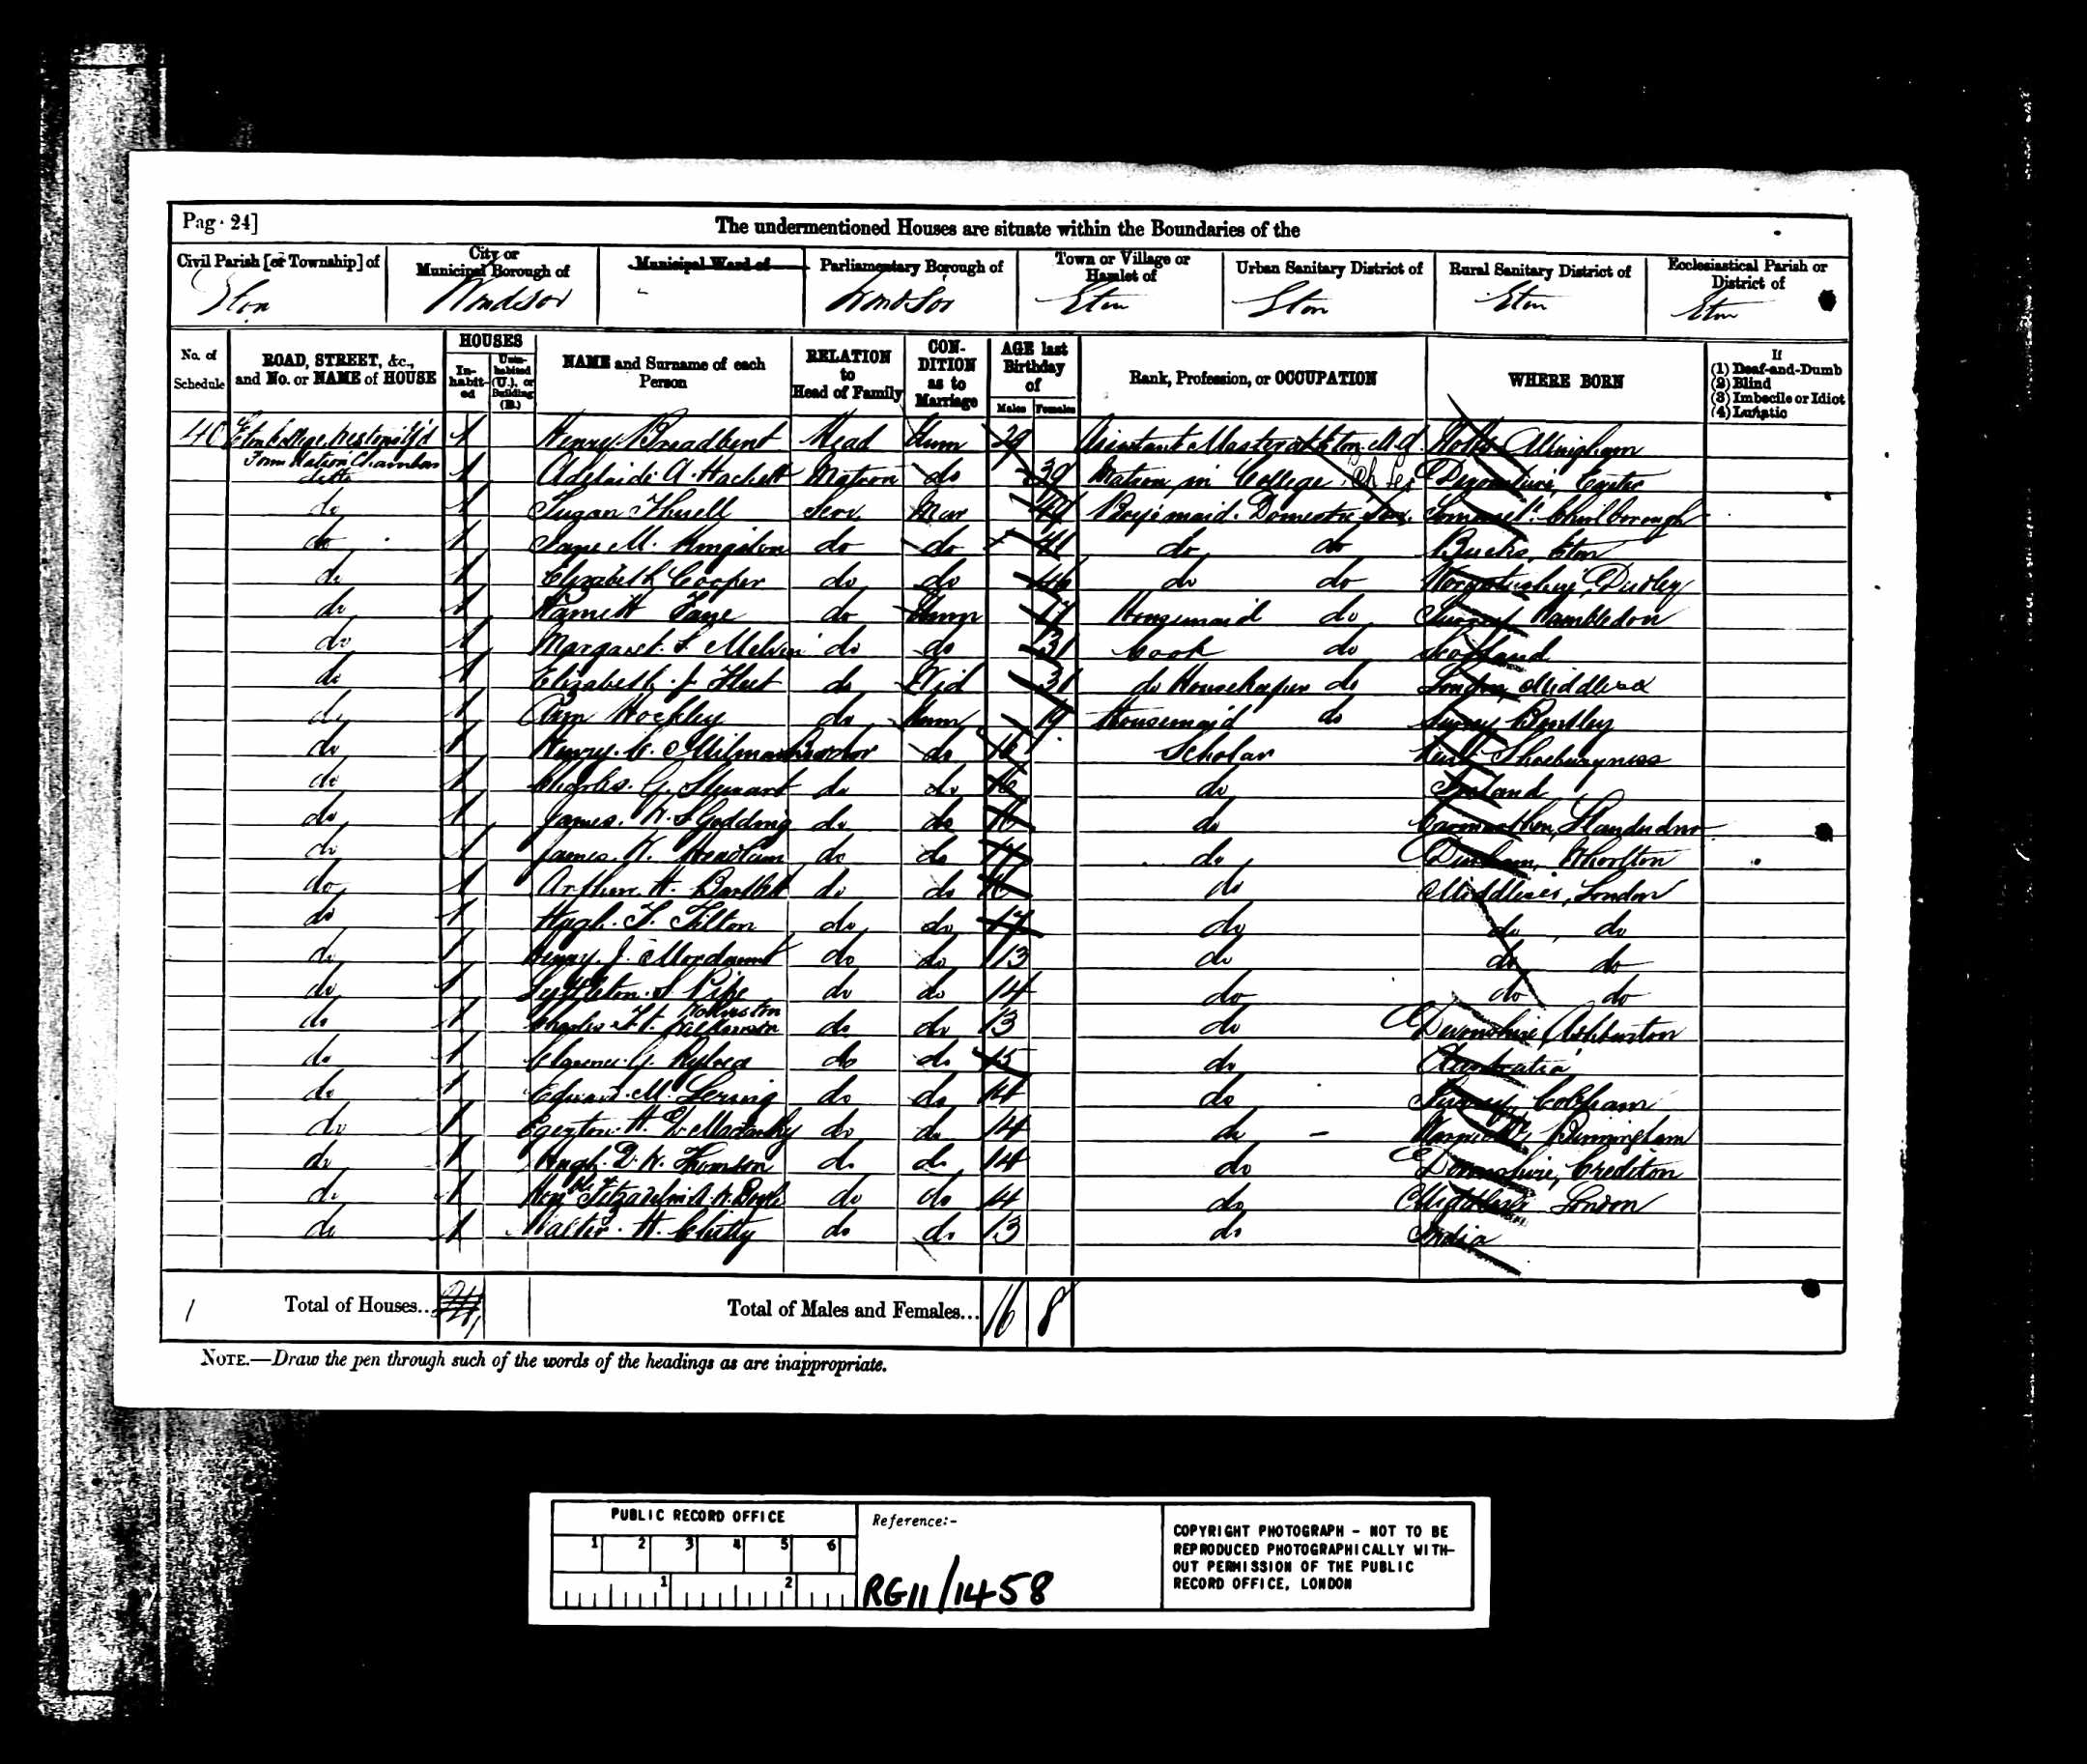 Pag· 24]
The undermentioned Houses are situate within the Boundaries of the
Civil Parish [or Township] of
City or Municipal Borough of
Municipal Ward of
Parliamentary Borough of
Town or Village or Hamlet of
Urban Sanitary District of
Rural Sanitary District of
Ecclesiastical Parish or District of
Eton Windsor Windsor Eton Eton Eton Eton
No. of Schedule
ROAD, STREET, &c., and No. or NAME of HOUSE
HOUSES
In-habit-ed
Unin-habited (U.), or Building (B.)
NAME and Surname of each Person
RELATION to Head of Family
CON-DITION as to Marriage
AGE last Birthday of
Males Females
Rank, Profession, or OCCUPATION
WHERE BORN
If
(1) Deaf-and-Dumb
(2) Blind
(3) Imbecile or Idiot
(4) Lunatic
40 Eton College 1 Henry Broadbent Head Unm 29 Assistant Master at Eton
ditto 1 Adelaide A. Hackett Matron do 39 Matron in College Devonshire, Exeter
do 1 Susan Serv Mar 49 Boys' maid. Domestic Serv.
do 1 Jane M. Kingston do do 41 do do Bucks, Eton
do 1 Elizabeth Cooper do do 46 do do Worcestershire, Dudley
do 1 do Unm 17 Housemaid do Surrey Hambledon
do 1 Margaret do do 31 Cook do Scotland
do 1 Elizabeth J. Fleet do Wid 31 do Housekeeper do London Middlesex
do 1 Ann Hockley do Unm 19 Housemaid do Surrey
do 1 Henry Milman Boarder do 16 Scholar Kent Shoeburyness
do 1 Charles G. Stewart do do 16 do Ireland
do 1 James. R. S Godding do do 16 do Carmarthen, Llandudno
do 1 James W. Headlam do do 17 do Durham, Whorlton
do 1 Arthur H. do do 16 do Middlesex, London
do 1 Hugh. F. Tilton do do 17 do do do
do 1 Henry. J. Mordaunt do do 13 do do do
do 1 Lyttleton. S. do do 14 do do do
do 1 Charles F. H. Johnston do do 13 do Devonshire, Ashburton
do 1 Clarence. G. do do 15 do Australia
do 1 Edward. M. do do 14 do Surrey, Cobham
do 1 Egerton. H. do do 14 do – Birmingham
do 1 Hugh. D. W. Thomson do do 14 do Devonshire, Crediton
do 1 Honble Boyle do do 14 do Middlesex London
do 1 Walter. H. Chitty do do 13 do India
1 Total of Houses... 1 Total of Males and Females... 16 8
NOTE.—Draw the pen through such of the words of the headings as are inappropriate.
PUBLIC RECORD OFFICE
1 2 3 4 5 6
1 2
Reference:-
RG11/1458
COPYRIGHT PHOTOGRAPH - NOT TO BE
REPRODUCED PHOTOGRAPHICALLY WITH-
OUT PERMISSION OF THE PUBLIC
RECORD OFFICE, LONDON